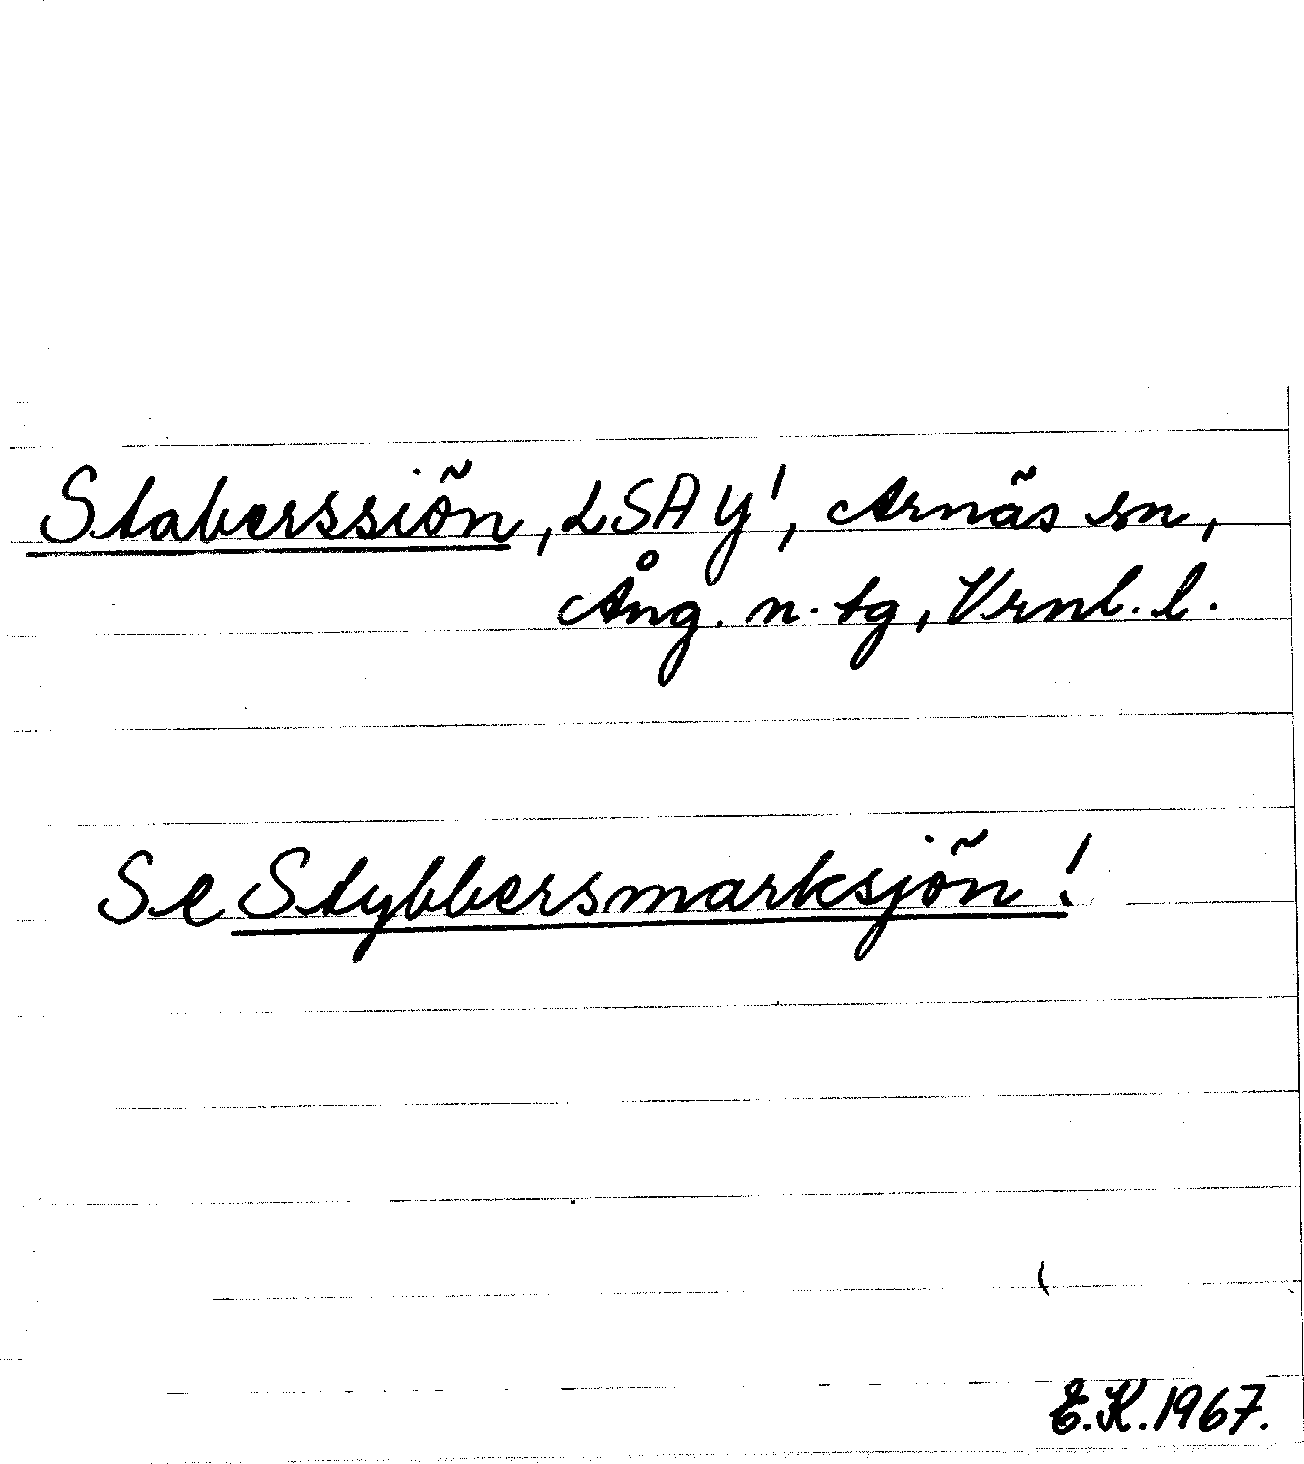 Staberssiön, LSA Y¹, Arnäs sn,
Ång. n. tg, Vrnl. l.
Se Stybbersmarksjön!
E.K. 1967.